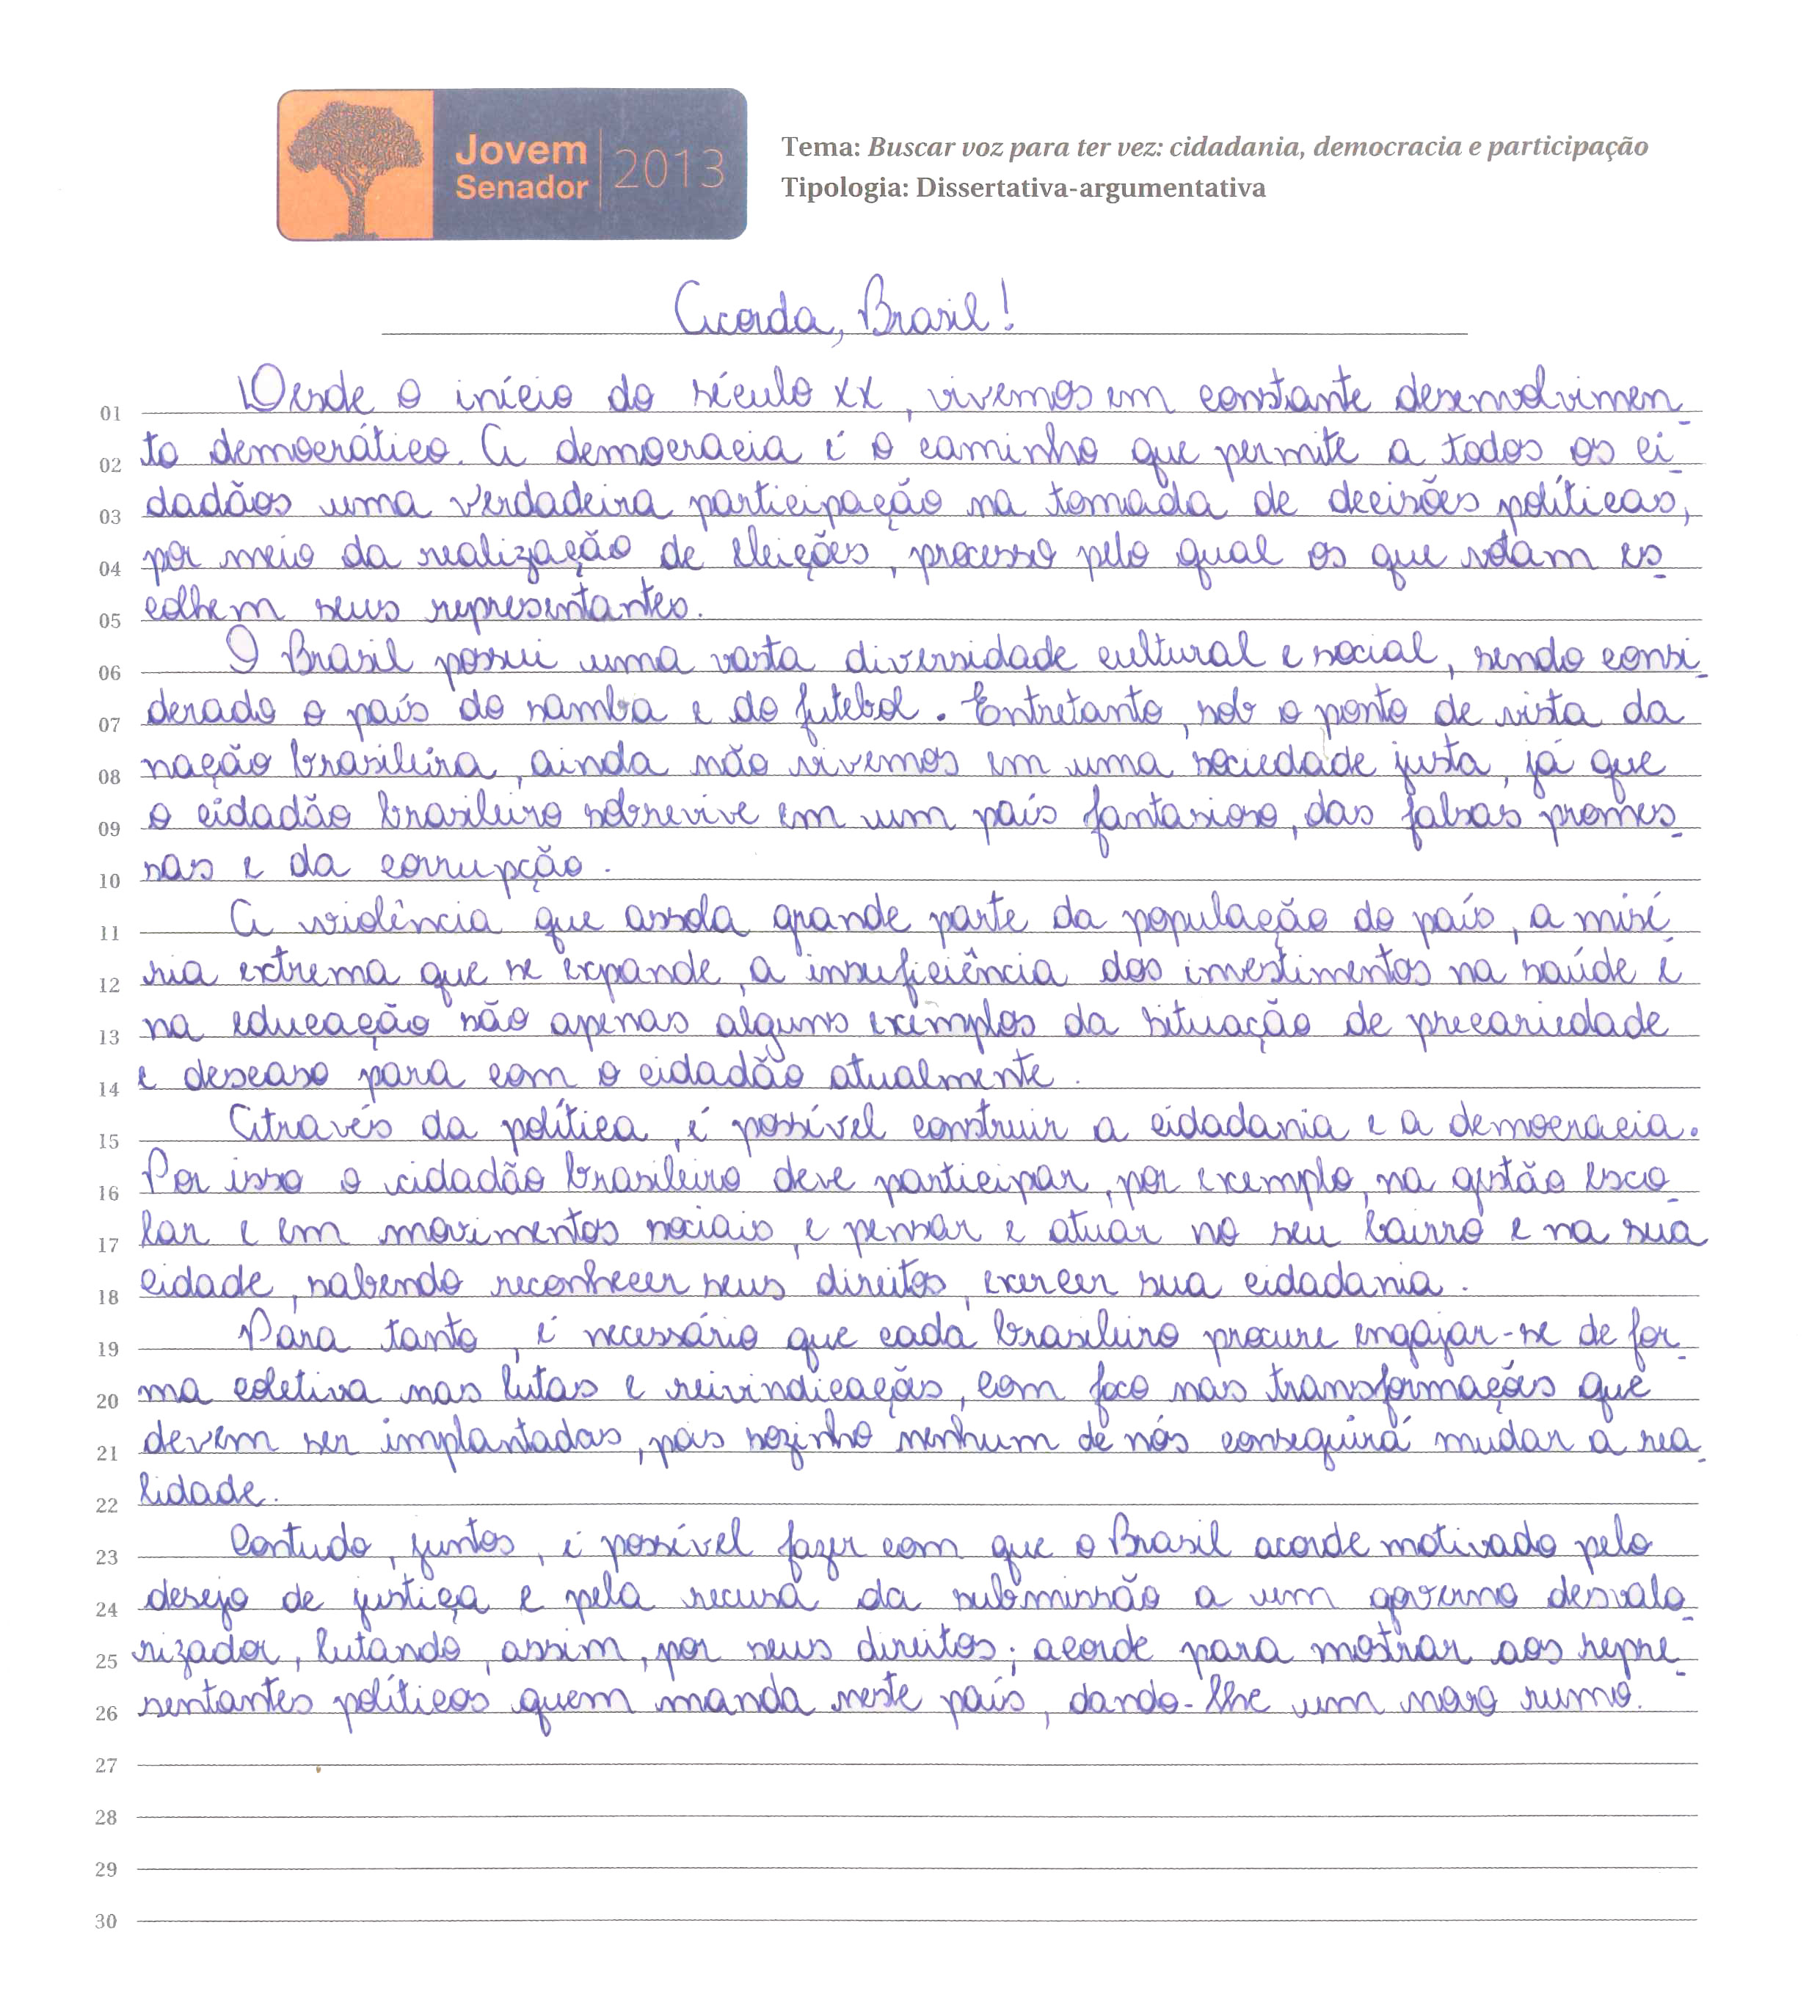 Jovem
Senador
2013
Tema: Buscar voz para ter vez: cidadania, democracia e participação
Tipologia: Dissertativa-argumentativa
Acorda, Brasil!
01 Desde o início do século XX, vivemos em constante desenvolvimen-
02 to democrático. A democracia é o caminho que permite a todos os ci-
03 dadãos uma verdadeira participação na tomada de decisões políticas,
04 por meio da realização de eleições, processo pelo qual os que votam es-
05 colhem seus representantes.
06 O Brasil possui uma vasta diversidade cultural e social, sendo consi-
07 derado o país do samba e do futebol. Entretanto, sob o ponto de vista da
08 nação brasileira, ainda não vivemos em uma sociedade justa, já que
09 o cidadão brasileiro sobrevive em um país fantasioso, das falsas promes-
10 sas e da corrupção.
11 A violência que assola grande parte da população do país, a misé
12 ria extrema que se expande, a insuficiência dos investimentos na saúde e
13 na educação são apenas alguns exemplos da situação de precariedade
14 e descaso para com o cidadão atualmente.
15 Através da política, é possível construir a cidadania e a democracia.
16 Por isso o cidadão brasileiro deve participar, por exemplo, na gestão esco-
17 lar e em movimentos sociais, e pensar e atuar no seu bairro e na sua
18 cidade, sabendo reconhecer seus direitos, exercer sua cidadania.
19 Para tanto, é necessário que cada brasileiro procure engajar-se de for-
20 ma coletiva nas lutas e reivindicações, com foco nas transformações que
21 devem ser implantadas, pois sozinho nenhum de nós conseguirá mudar a rea-
22 lidade.
23 Contudo, juntos, é possível fazer com que o Brasil acorde motivado pelo
24 desejo de justiça e pela recusa da submissão a um governo desvalo-
25 rizador, lutando, assim, por seus direitos; acorde para mostrar aos repre-
26 sentantes políticos quem manda neste país, dando-lhe um novo rumo.
27
28
29
30